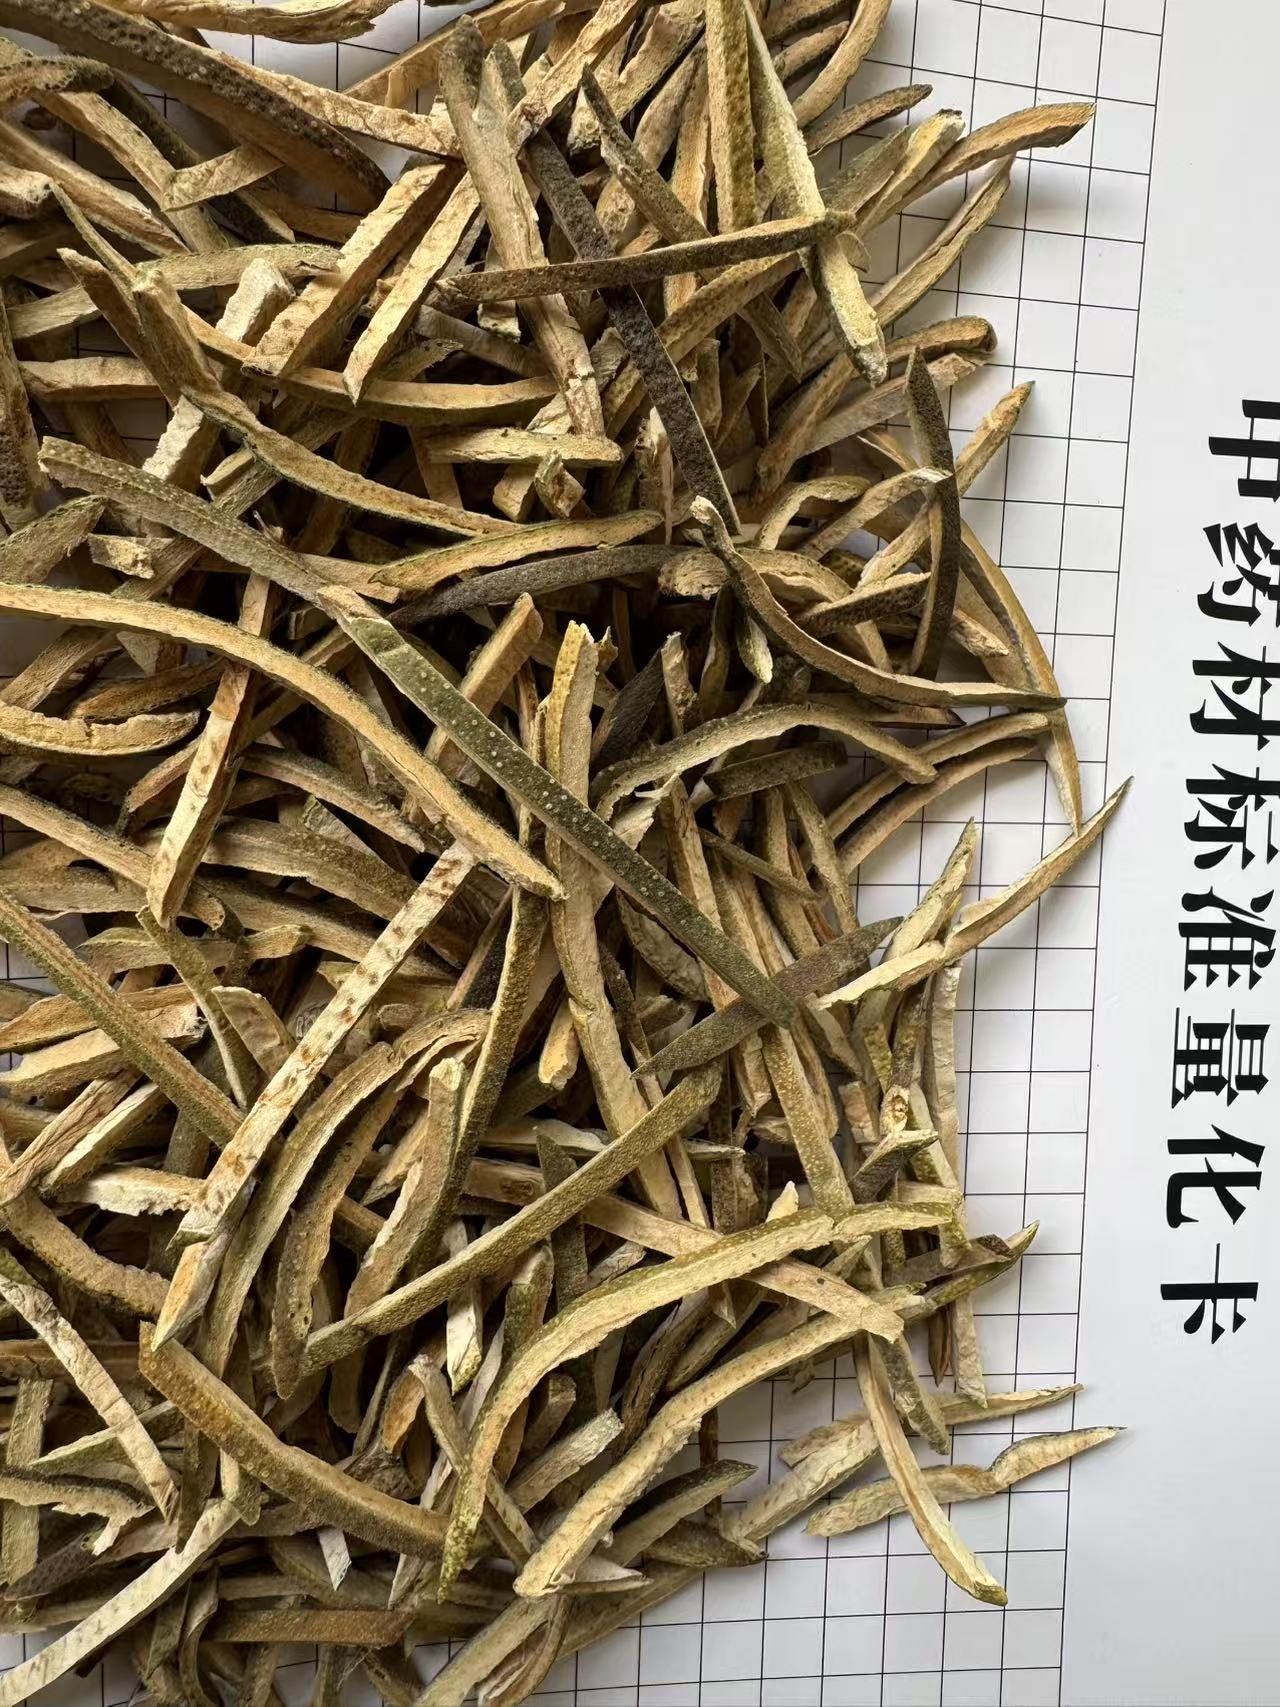 中药材标准量化卡